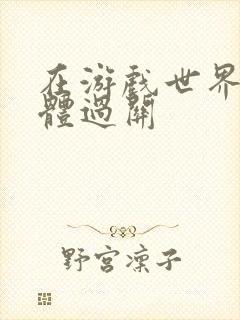 在游戲世界
體過關
野宮凜子